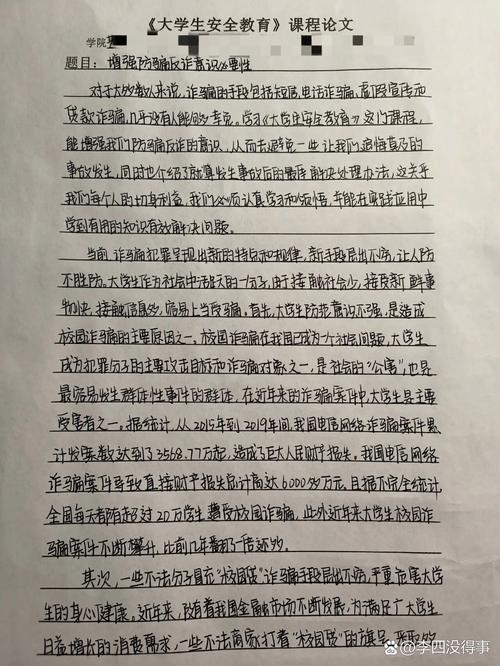 《大学生安全教育》课程论文
学院
题目：增强防骗反诈意识必要性
对于大多数人来说，诈骗的手段包括短信、电话诈骗、虚假宣传和
贷款诈骗，几乎没有人能够幸免。学习《大学生安全教育》这门课程，
能增强我们防骗反诈的意识，从而去避免一些让我们追悔莫及的
事故发生，同时也介绍了就算发生事故后的最佳解决处理办法，这关乎
我们每个人的切身利益，我们必须认真学习和领悟，并能在实践应用中
学到有用的知识有效解决问题。
当前，诈骗犯罪呈现出新的特点和规律，新手段层出不穷，让人防
不胜防。大学生作为社会中活跃的一分子，由于接触社会少，接受新鲜事
物快，接触信息多，容易上当受骗。首先，大学生防范意识不强，是造成
校园诈骗的主要原因之一。校园诈骗在我国已成为一个社会问题，大学生
成为犯罪分子的主要攻击目标和诈骗对象之一，是社会的“公害”，也是
最容易发生群体性事件的群体，在近年来的诈骗案件中，大学生是主要
受害者之一。据统计，从2015年到2019年间，我国电信网络诈骗案件累
计发案数达到了3568.77万起，造成了巨大人民财产损失，我国电信网络
诈骗案件导致直接财产损失总计高达6000多万元，且据不完全统计，
全国每天都有超过20万学生遭受校园诈骗，此外近年来大学生校园诈
骗案件不断攀升，比前几年翻了一倍还多。
其次，一些不法分子冒充“校园贷”诈骗手段层出不穷，严重危害大学
生的身心健康。近年来，随着我国金融市场不断发展，为满足广大学生
日益增长的消费需求，一些不法商家打着“校园贷”的旗号，
@李四没得事